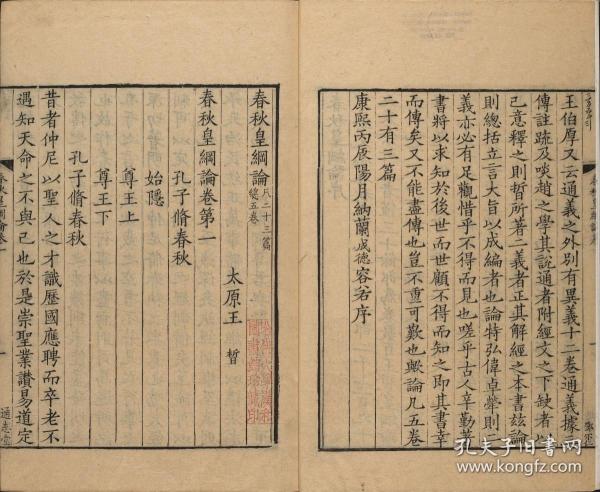 王伯厚又云通義之外別有異義十二卷通義據
傳註疏及啖趙之學其說通者附經文之下缺者以
己意釋之則晳所著二義者正其解經之本書茲論
則總括立言大旨以成編者也論特弘偉卓犖則二
義亦必有足觀惜乎不得而見也嗟乎古人辛勤著
書將以求知於後世而世顧不得而知之即其書幸
而傳矣又不能盡傳也豈不重可歎也歟論凡五卷
二十有三篇
康熙丙辰陽月納蘭成德容若序
春秋皇綱論凡二十三篇
總五卷
太原王 晳
春秋皇綱論卷第一
孔子脩春秋
始隱
尊王上
尊王下
孔子脩春秋
昔者仲尼以聖人之才識歷國應聘而卒老不
遇知天命之不與己也於是崇聖業讚易道定
通志堂
孔夫子旧书网
www.kongfz.com